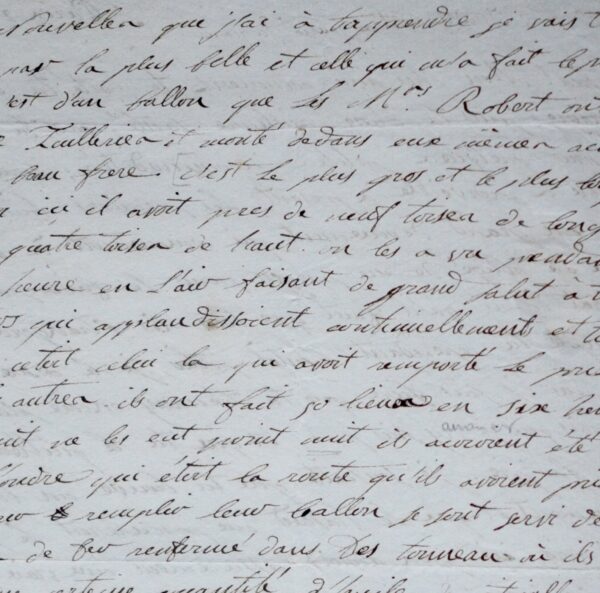 nouvelles que j'ai à t'apprendre je vais t
pas la plus belle et celle qui m'a fait le p
est d'un ballon que les Mrs Robert on
Tuilleries et monté dedans eux mêmes
beau frere. c'est le plus gros et le plus
ici il avoit pres de neuf toises de long
quatre toises de haut. on les a vu pendan
heure en l'air faisant de grand salut à
qui applaudissoient continuellements et t
cetoit celui la qui avoit remporté le pri
autres ils ont fait 50 lieux en six heu
ne les eut point nuit ils auroient été
ondre qui étoit la route qu'ils avoient pri
remplir leur ballon se sont servi de
de fer renfermé dans des tonneau où ils
certaine quantité d'huile